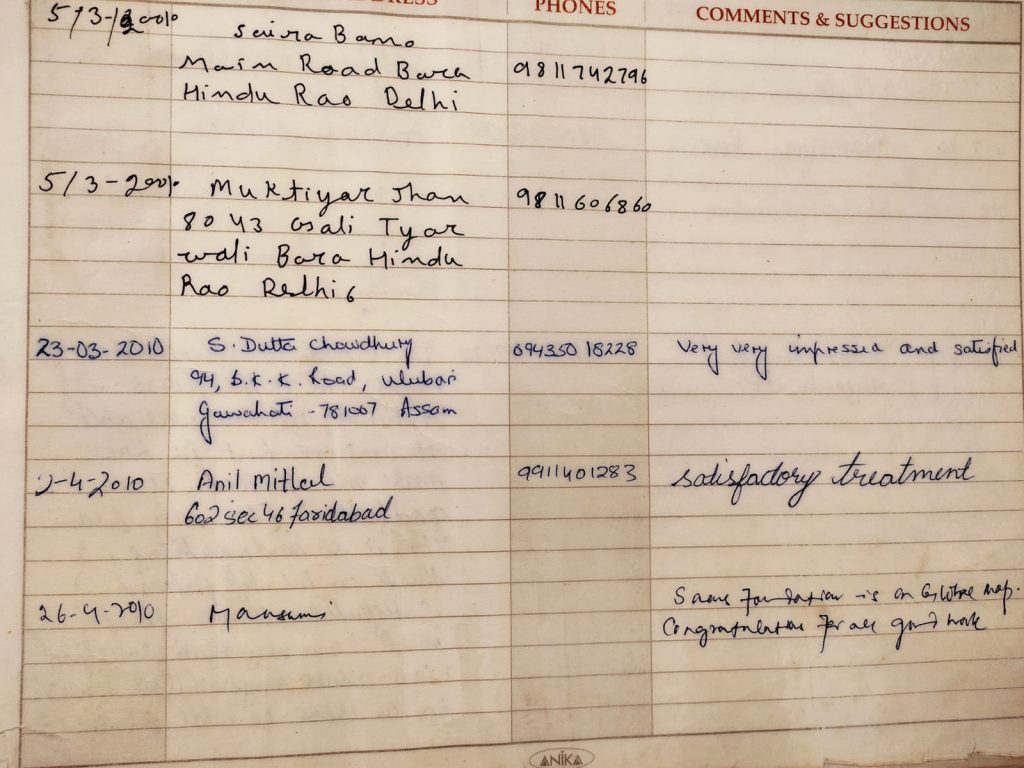 PHONES
COMMENTS & SUGGESTIONS
Saira Bano
Main Road Bara
9811742796
Hindu Rao Delhi
Muktiyar Jhan
9811606860
8043 Gali Tyar
wali Bara Hindu
Rao Delhi 6
23-03-2010 S. Dutta Chowdhury 094350 18228 Very very impressed and satisfied
94, B.K.K. Road, Ulubari
Guwahati - 781007 Assam
2-4-2010 Anil Mittal 9911401283 satisfactory treatment
602 sec 46 Faridabad
26-4-2010
Foundation is on Globle map.
Congratulation for all good work
ANIKA